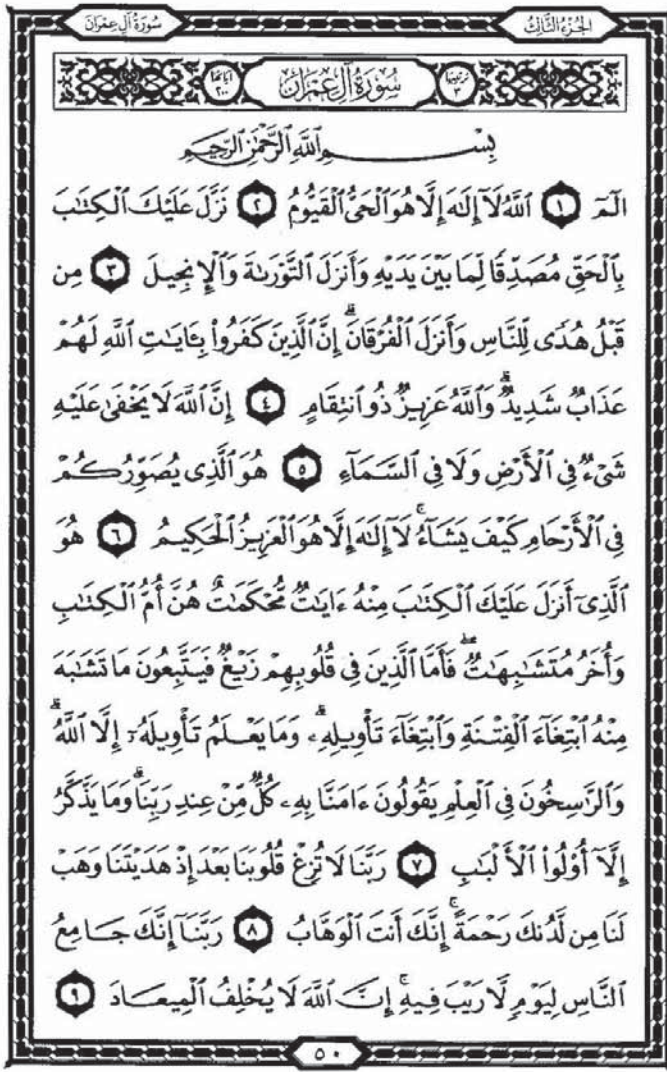 الجُزْءُ الثَّالِثُ
سُورَةُ آلِ عِمْرَانَ
ترتيبها ٣
سُورَةُ آلِ عِمْرَانَ
آياتها ٢٠٠
بِسْمِ ٱللَّهِ ٱلرَّحْمَٰنِ ٱلرَّحِيمِ
الٓمٓ ١ ٱللَّهُ لَآ إِلَٰهَ إِلَّا هُوَ ٱلْحَىُّ ٱلْقَيُّومُ ٢ نَزَّلَ عَلَيْكَ ٱلْكِتَٰبَ
بِٱلْحَقِّ مُصَدِّقًا لِّمَا بَيْنَ يَدَيْهِ وَأَنزَلَ ٱلتَّوْرَىٰةَ وَٱلْإِنجِيلَ ٣ مِن
قَبْلُ هُدًى لِّلنَّاسِ وَأَنزَلَ ٱلْفُرْقَانَ ۗ إِنَّ ٱلَّذِينَ كَفَرُوا۟ بِـَٔايَٰتِ ٱللَّهِ لَهُمْ
عَذَابٌ شَدِيدٌ ۗ وَٱللَّهُ عَزِيزٌ ذُو ٱنتِقَامٍ ٤ إِنَّ ٱللَّهَ لَا يَخْفَىٰ عَلَيْهِ
شَىْءٌ فِى ٱلْأَرْضِ وَلَا فِى ٱلسَّمَآءِ ٥ هُوَ ٱلَّذِى يُصَوِّرُكُمْ
فِى ٱلْأَرْحَامِ كَيْفَ يَشَآءُ ۚ لَآ إِلَٰهَ إِلَّا هُوَ ٱلْعَزِيزُ ٱلْحَكِيمُ ٦ هُوَ
ٱلَّذِىٓ أَنزَلَ عَلَيْكَ ٱلْكِتَٰبَ مِنْهُ ءَايَٰتٌ مُّحْكَمَٰتٌ هُنَّ أُمُّ ٱلْكِتَٰبِ
وَأُخَرُ مُتَشَٰبِهَٰتٌ ۖ فَأَمَّا ٱلَّذِينَ فِى قُلُوبِهِمْ زَيْغٌ فَيَتَّبِعُونَ مَا تَشَٰبَهَ
مِنْهُ ٱبْتِغَآءَ ٱلْفِتْنَةِ وَٱبْتِغَآءَ تَأْوِيلِهِۦ ۗ وَمَا يَعْلَمُ تَأْوِيلَهُۥٓ إِلَّا ٱللَّهُ ۗ
وَٱلرَّٰسِخُونَ فِى ٱلْعِلْمِ يَقُولُونَ ءَامَنَّا بِهِۦ كُلٌّ مِّنْ عِندِ رَبِّنَا ۗ وَمَا يَذَّكَّرُ
إِلَّآ أُو۟لُوا۟ ٱلْأَلْبَٰبِ ٧ رَبَّنَا لَا تُزِغْ قُلُوبَنَا بَعْدَ إِذْ هَدَيْتَنَا وَهَبْ
لَنَا مِن لَّدُنكَ رَحْمَةً ۚ إِنَّكَ أَنتَ ٱلْوَهَّابُ ٨ رَبَّنَآ إِنَّكَ جَامِعُ
ٱلنَّاسِ لِيَوْمٍ لَّا رَيْبَ فِيهِ ۚ إِنَّ ٱللَّهَ لَا يُخْلِفُ ٱلْمِيعَادَ ٩
٥٠